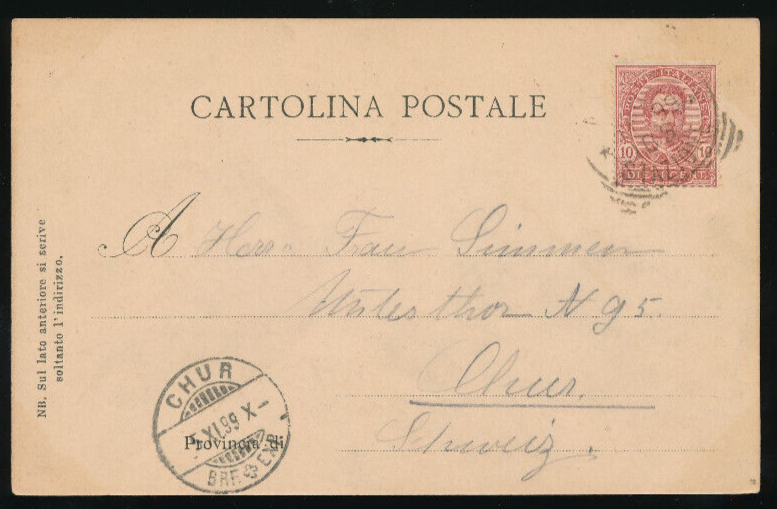 CARTOLINA POSTALE
POSTE ITALIANE
10 10
A Herr Fau Simmen
Untesthor N 95.
Chur.
Schweiz.
Provincia di
CHUR
XI.99 X-
BRF. EXP.
NB. Sul lato anteriore si scrive
soltanto l'indirizzo.